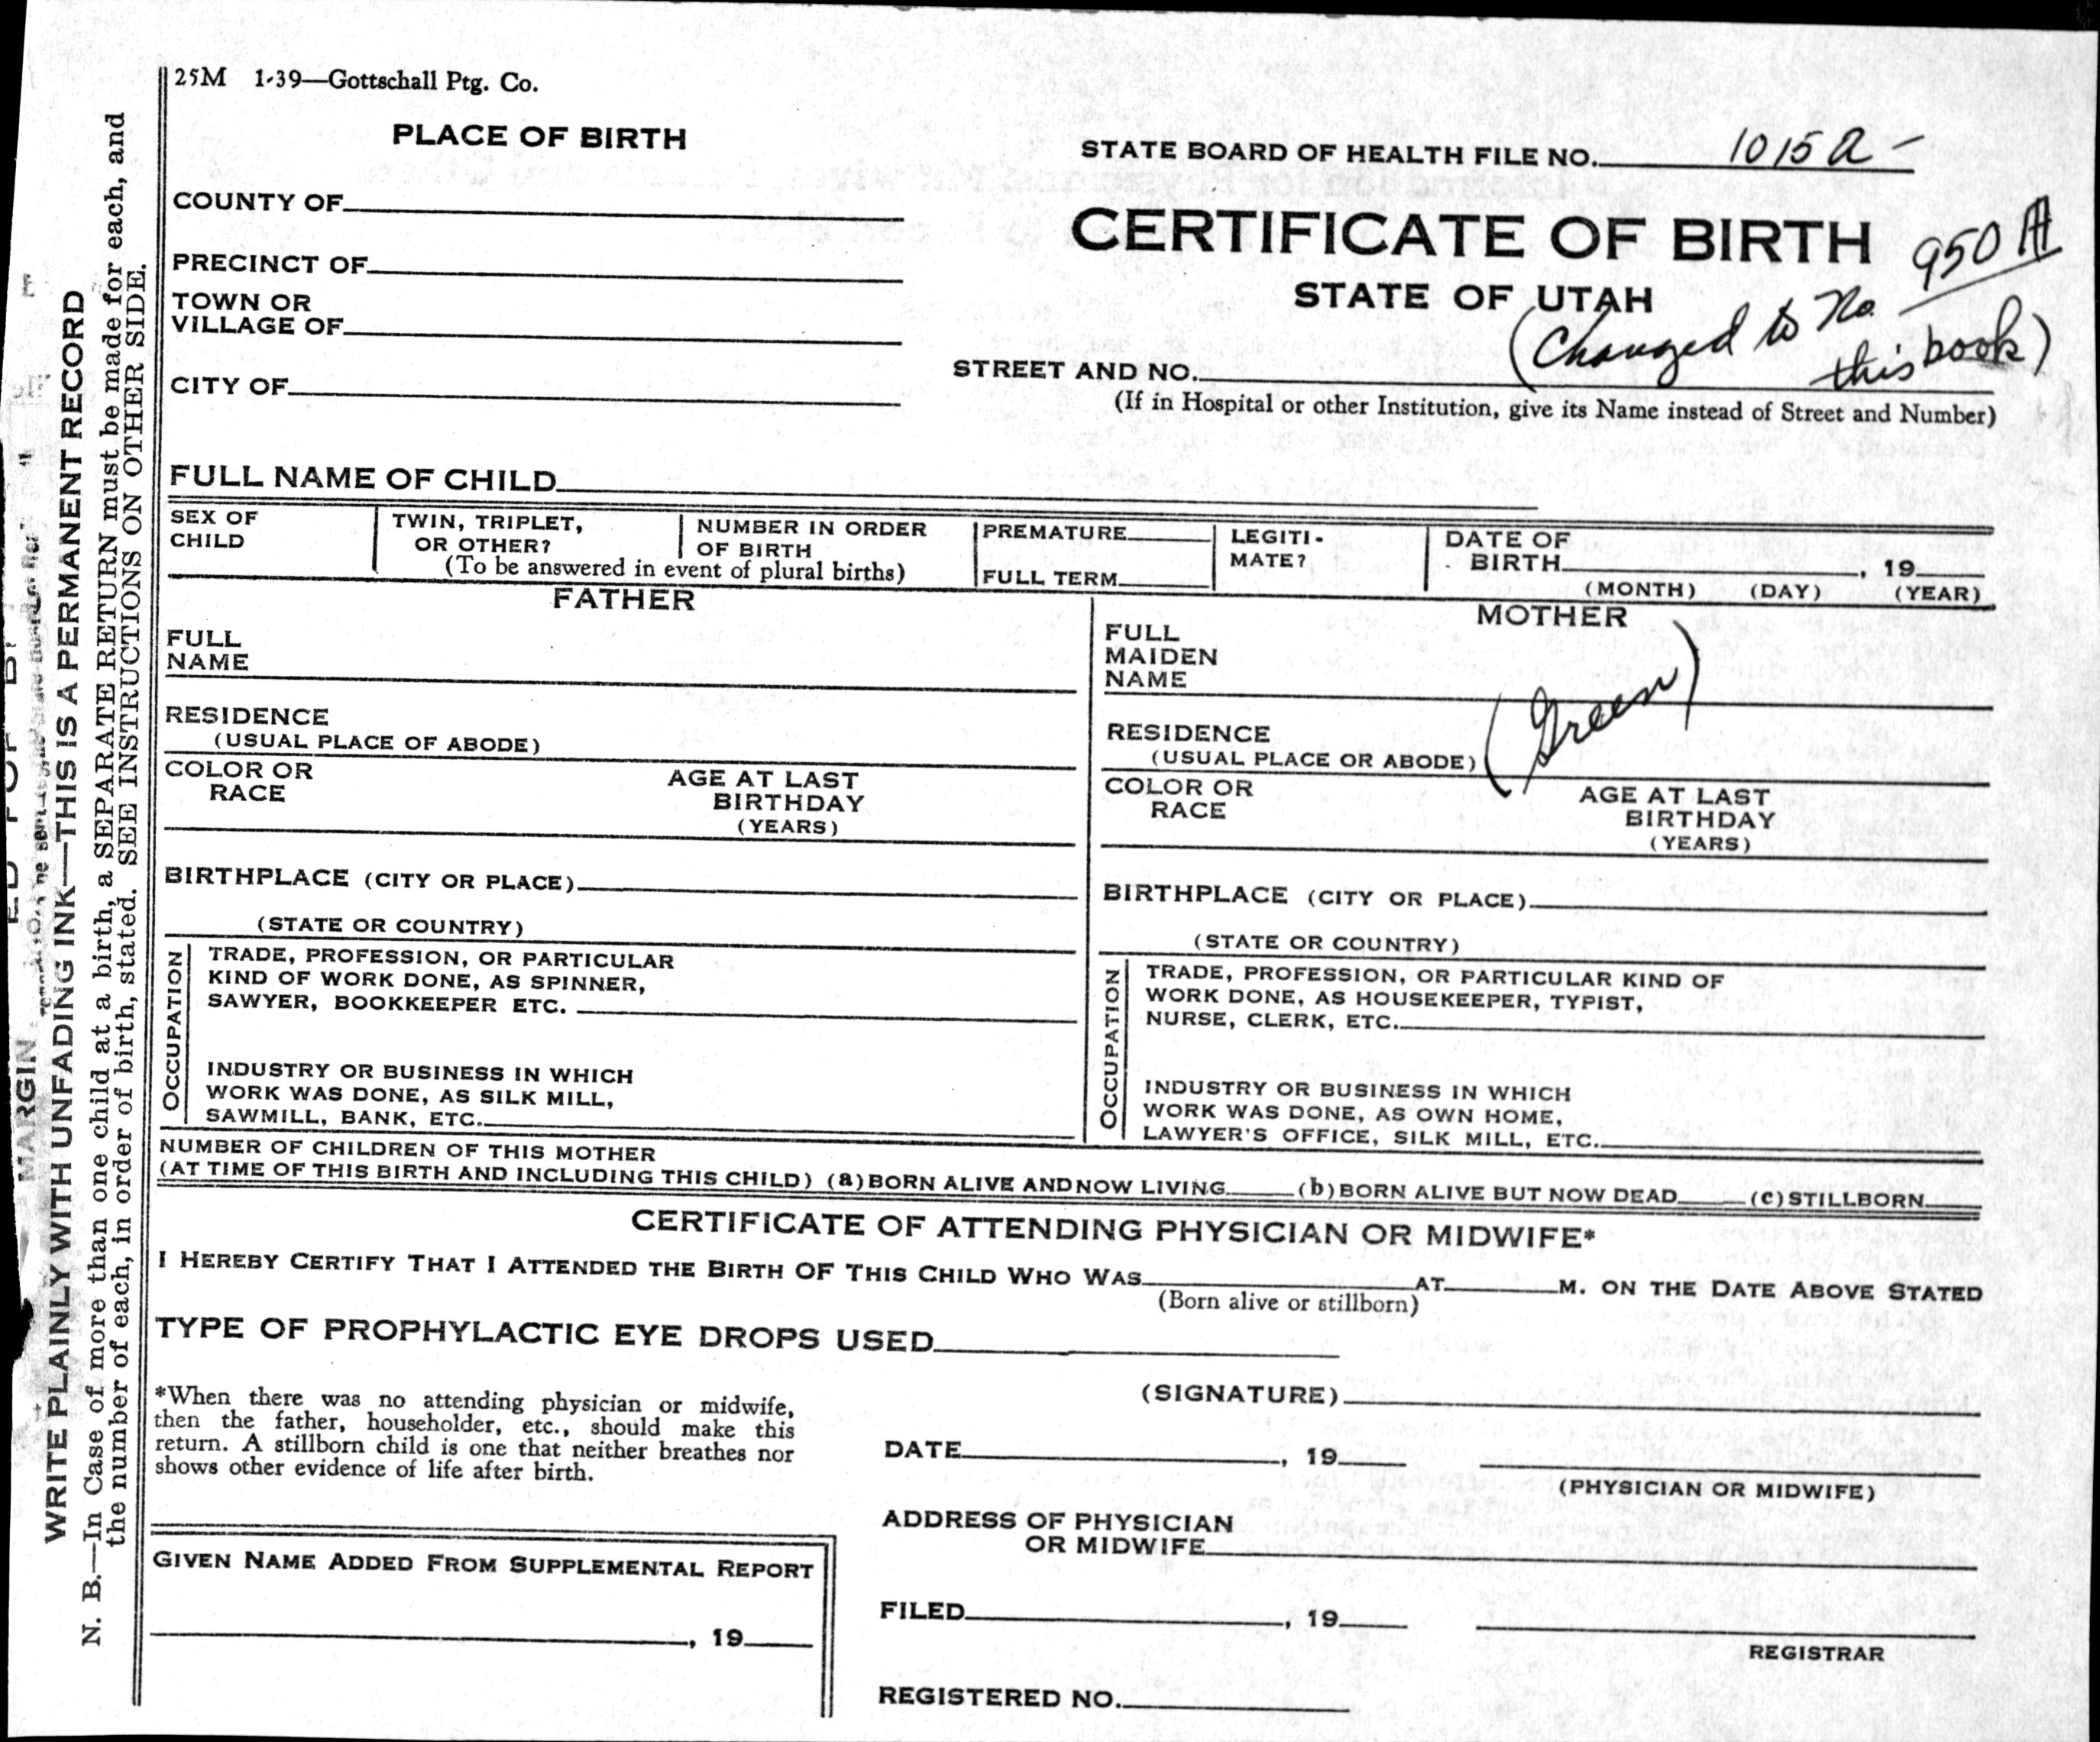 25M 1-39—Gottschall Ptg. Co.
PLACE OF BIRTH
STATE BOARD OF HEALTH FILE NO. 1015 a -
COUNTY OF
CERTIFICATE OF BIRTH
950 A
PRECINCT OF
STATE OF UTAH
(Changed to No.
this book)
TOWN OR
VILLAGE OF
STREET AND NO.
CITY OF
(If in Hospital or other Institution, give its Name instead of Street and Number)
FULL NAME OF CHILD
SEX OF
CHILD
TWIN, TRIPLET,
OR OTHER?
NUMBER IN ORDER
OF BIRTH
(To be answered in event of plural births)
PREMATURE
FULL TERM
LEGITI-
MATE?
DATE OF
BIRTH , 19
(MONTH) (DAY) (YEAR)
FATHER
FULL
NAME
RESIDENCE
(USUAL PLACE OF ABODE)
COLOR OR
RACE
AGE AT LAST
BIRTHDAY
(YEARS)
BIRTHPLACE (CITY OR PLACE)
(STATE OR COUNTRY)
OCCUPATION
TRADE, PROFESSION, OR PARTICULAR
KIND OF WORK DONE, AS SPINNER,
SAWYER, BOOKKEEPER ETC.
INDUSTRY OR BUSINESS IN WHICH
WORK WAS DONE, AS SILK MILL,
SAWMILL, BANK, ETC.
MOTHER
FULL
MAIDEN
NAME
(Green)
RESIDENCE
(USUAL PLACE OR ABODE)
COLOR OR
RACE
AGE AT LAST
BIRTHDAY
(YEARS)
BIRTHPLACE (CITY OR PLACE)
(STATE OR COUNTRY)
OCCUPATION
TRADE, PROFESSION, OR PARTICULAR KIND OF
WORK DONE, AS HOUSEKEEPER, TYPIST,
NURSE, CLERK, ETC.
INDUSTRY OR BUSINESS IN WHICH
WORK WAS DONE, AS OWN HOME,
LAWYER'S OFFICE, SILK MILL, ETC.
NUMBER OF CHILDREN OF THIS MOTHER
(AT TIME OF THIS BIRTH AND INCLUDING THIS CHILD) (a) BORN ALIVE AND NOW LIVING (b) BORN ALIVE BUT NOW DEAD (c) STILLBORN
CERTIFICATE OF ATTENDING PHYSICIAN OR MIDWIFE*
I HEREBY CERTIFY THAT I ATTENDED THE BIRTH OF THIS CHILD WHO WAS AT M. ON THE DATE ABOVE STATED
(Born alive or stillborn)
TYPE OF PROPHYLACTIC EYE DROPS USED
*When there was no attending physician or midwife,
then the father, householder, etc., should make this
return. A stillborn child is one that neither breathes nor
shows other evidence of life after birth.
(SIGNATURE)
DATE , 19
(PHYSICIAN OR MIDWIFE)
ADDRESS OF PHYSICIAN
OR MIDWIFE
GIVEN NAME ADDED FROM SUPPLEMENTAL REPORT
, 19
FILED , 19
REGISTRAR
REGISTERED NO.
MARGIN
WRITE PLAINLY WITH UNFADING INK—THIS IS A PERMANENT RECORD
N. B.—In Case of more than one child at a birth, a SEPARATE RETURN must be made for each, and
the number of each, in order of birth, stated. SEE INSTRUCTIONS ON OTHER SIDE.